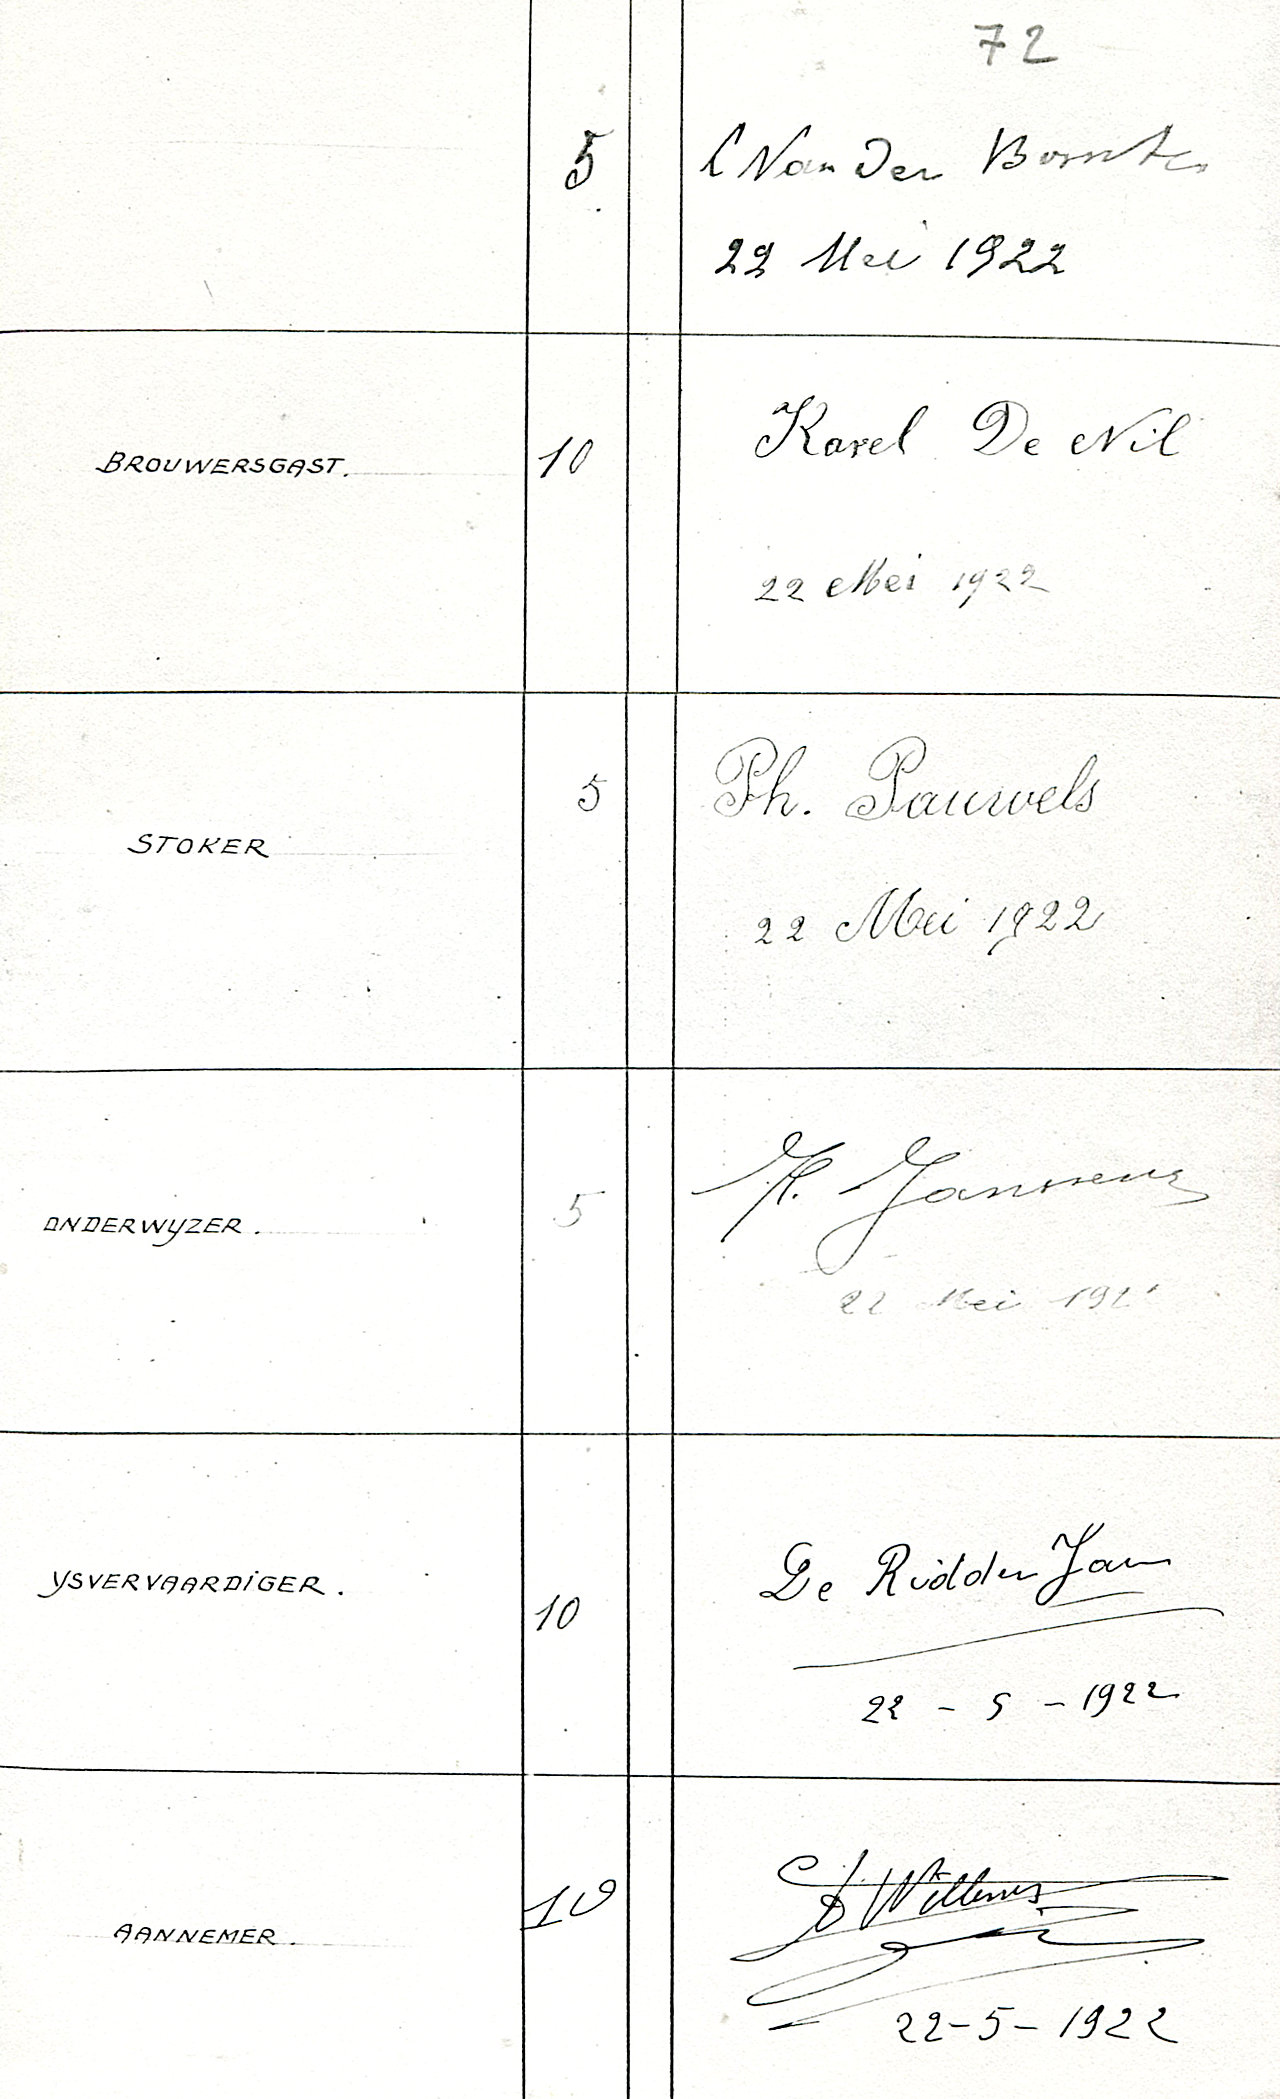 72
5 Van Der
22 Mei 1922
BROUWERSGAST. 10 Karel De Nil
22 Mei 1922
5 Ph. Pauwels
STOKER
22 Mei 1922
ONDERWYZER. 5 Janssens
22 Mei
YSVERVAARDIGER. 10 De Ridder Jan
22 - 5 - 1922
AANNEMER. 10 Willems
22-5-1922